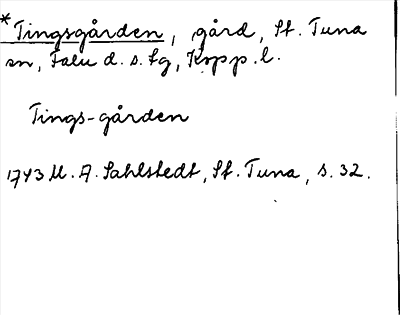 * Tingsgården, gård, St. Tuna
sn, Falu d. s. fg, Kopp. l.
Tings-gården
1743 M. A. Sahlstedt, St. Tuna, s. 32.